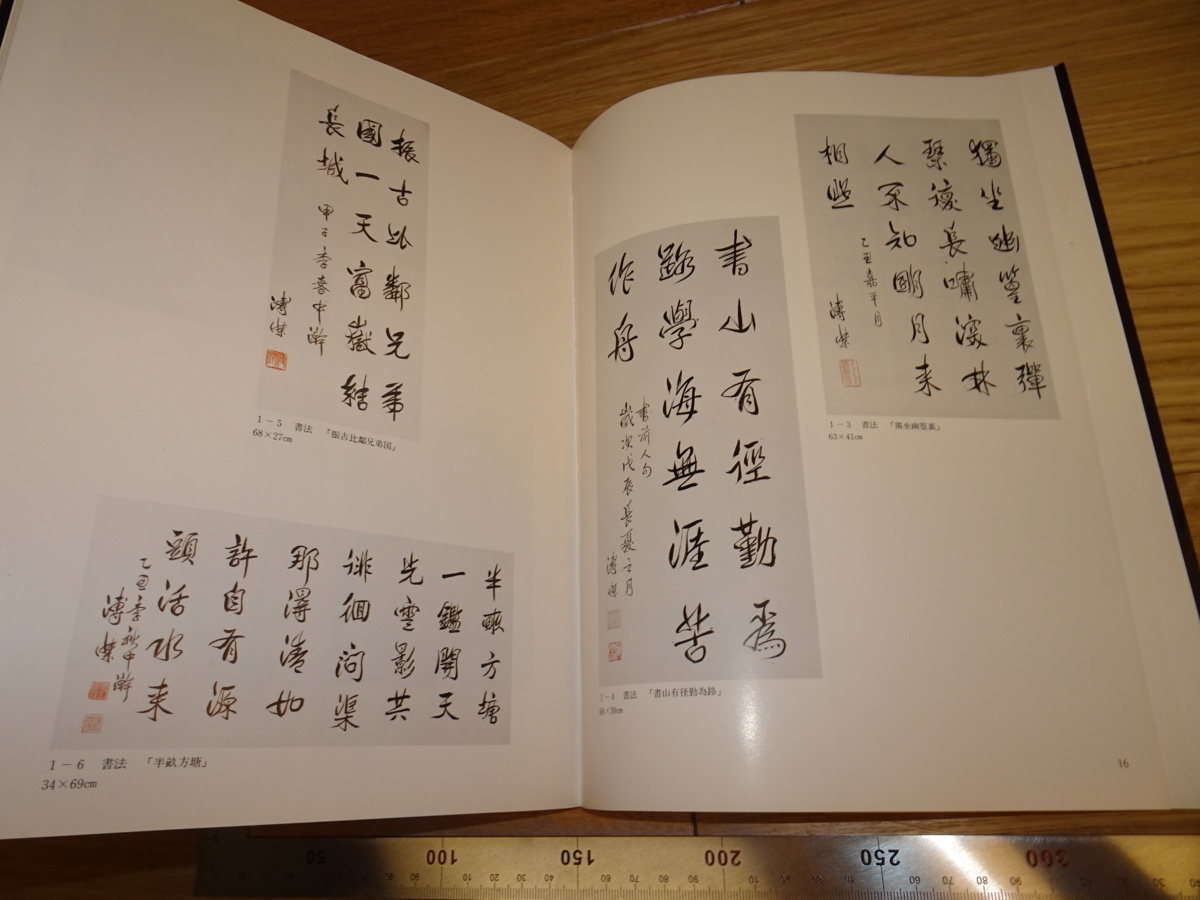 獨坐幽篁裏彈
琴復長嘯深林
人不知明月来
相照
乙丑嘉平月
溥傑
1-3 書法 「獨坐幽篁裏」
63×41cm
書山有徑勤爲
路學海無涯苦
作舟
書前人句
歲次戊辰長夏之月
溥傑
1-4 書法 「書山有径勤為路」
振古比鄰兄弟
國一天富嶽結
長城
甲子季春中澣
溥傑
1-5 書法 「振古比鄰兄弟国」
68×27cm
半畝方塘
一鑑開天
光雲影共
徘徊问渠
那得清如
許自有源
頭活水来
乙丑季秋中澣
溥傑
1-6 書法 「半畝方塘」
34×69cm
16
50
100
150
200
250
300